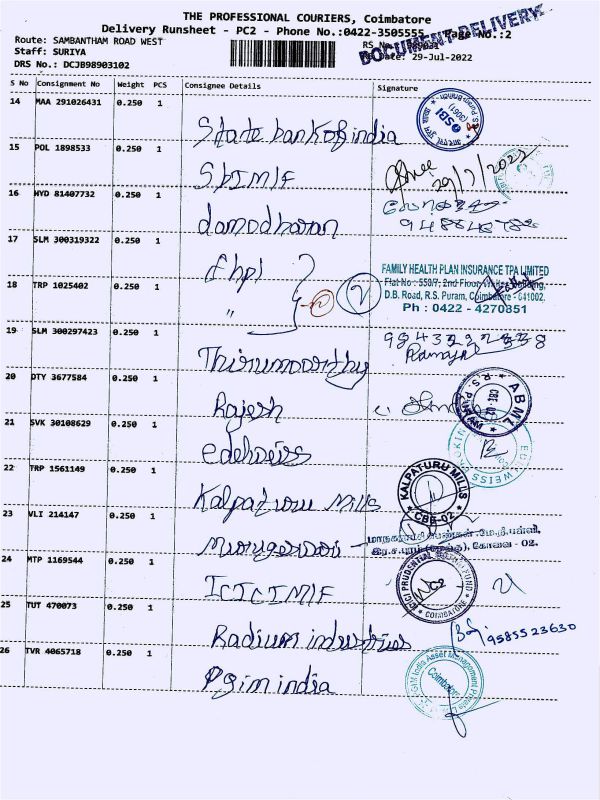 THE PROFESSIONAL COURIERS, Coimbatore
Delivery Runsheet - PC2 - Phone No.:0422-3505555 Page No.:2
DOCUMENT DELIVERY
Route: SAMBANTHAM ROAD WEST
Staff: SURIYA
DRS No.: DCJB98903102
RS Date: 29-Jul-2022
S No Consignment No Weight PCS Consignee Details Signature
14 MAA 291026431 0.250 1
State bank of india
SBI
15 POL 1898533 0.250 1
SbIMIF
29/7/2022
16 HYD 81407732 0.250 1
damodharan
17 SLM 300319322 0.250 1
fhpl
FAMILY HEALTH PLAN INSURANCE TPA LIMITED
Flat No : 550/7, 2nd Floor, Building,
D.B. Road, R.S. Puram, Coimbatore - 641002.
Ph : 0422 - 4270851
18 TRP 1025402 0.250 1
"
2
19 SLM 300297423 0.250 1
Thirumoorthy
20 DTY 3677584 0.250 1
Rajesh
ABML
R.S. PURAM
CBE-02
21 SVK 30108629 0.250 1
edelweiss
22 TRP 1561149 0.250 1
Kalpaturu Mills
KALPATURU MILLS
CBE-02
23 VLI 214147 0.250 1
Murugesan
கோவை - 02.
24 MTP 1169544 0.250 1
ICICIMIF
ICICI PRUDENTIAL MUTUAL FUND
COIMBATORE
25 TUT 470073 0.250 1
Radium industries
9585523630
26 TVR 4065718 0.250 1
Pgim india
PGIM India Asset Management Private
Coimbatore